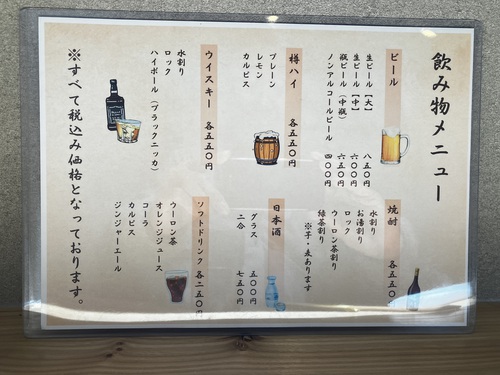 飲み物メニュー
ビール
生ビール【大】 八五〇円
生ビール【中】 六五〇円
瓶ビール(中瓶) 六〇〇円
ノンアルコールビール 四〇〇円
樽ハイ 各五五〇円
プレーン
レモン
カルピス
ウイスキー 各五五〇円
水割り
ロック
ハイボール(ブラックニッカ)
焼酎 各五五〇
水割り
お湯割り
ロック
ウーロン茶割り
緑茶割り
※芋・麦あります
日本酒
グラス 五〇〇円
二合 七五〇円
ソフトドリンク 各二五〇円
ウーロン茶
オレンジジュース
コーラ
カルピス
ジンジャーエール
※すべて税込み価格となっております。